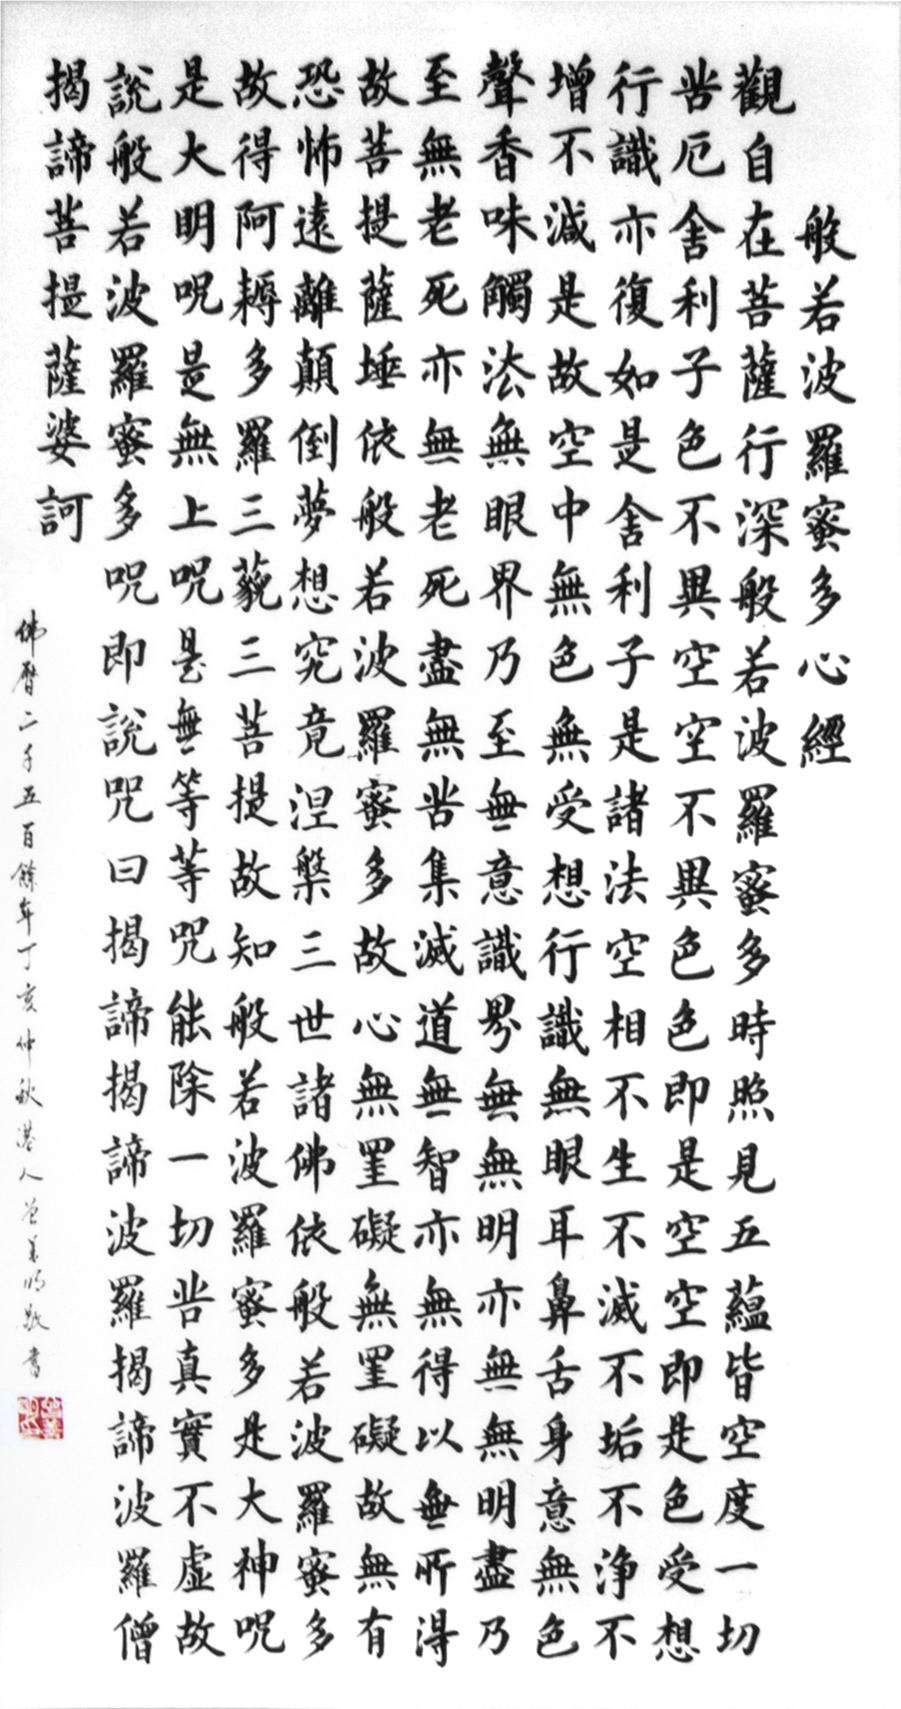 般若波羅蜜多心經
觀自在菩薩行深般若波羅蜜多時照見五蘊皆空度一切
苦厄舍利子色不異空空不異色色即是空空即是色受想
行識亦復如是舍利子是諸法空相不生不滅不垢不淨不
增不減是故空中無色無受想行識無眼耳鼻舌身意無色
聲香味觸法無眼界乃至無意識界無無明亦無無明盡乃
至無老死亦無老死盡無苦集滅道無智亦無得以無所得
故菩提薩埵依般若波羅蜜多故心無罣礙無罣礙故無有
恐怖遠離顛倒夢想究竟涅槃三世諸佛依般若波羅蜜多
故得阿耨多羅三藐三菩提故知般若波羅蜜多是大神咒
是大明咒是無上咒是無等等咒能除一切苦真實不虛故
說般若波羅蜜多咒即說咒曰揭諦揭諦波羅揭諦波羅僧
揭諦菩提薩婆訶
佛曆二千五百餘年丁亥仲秋港人敬書